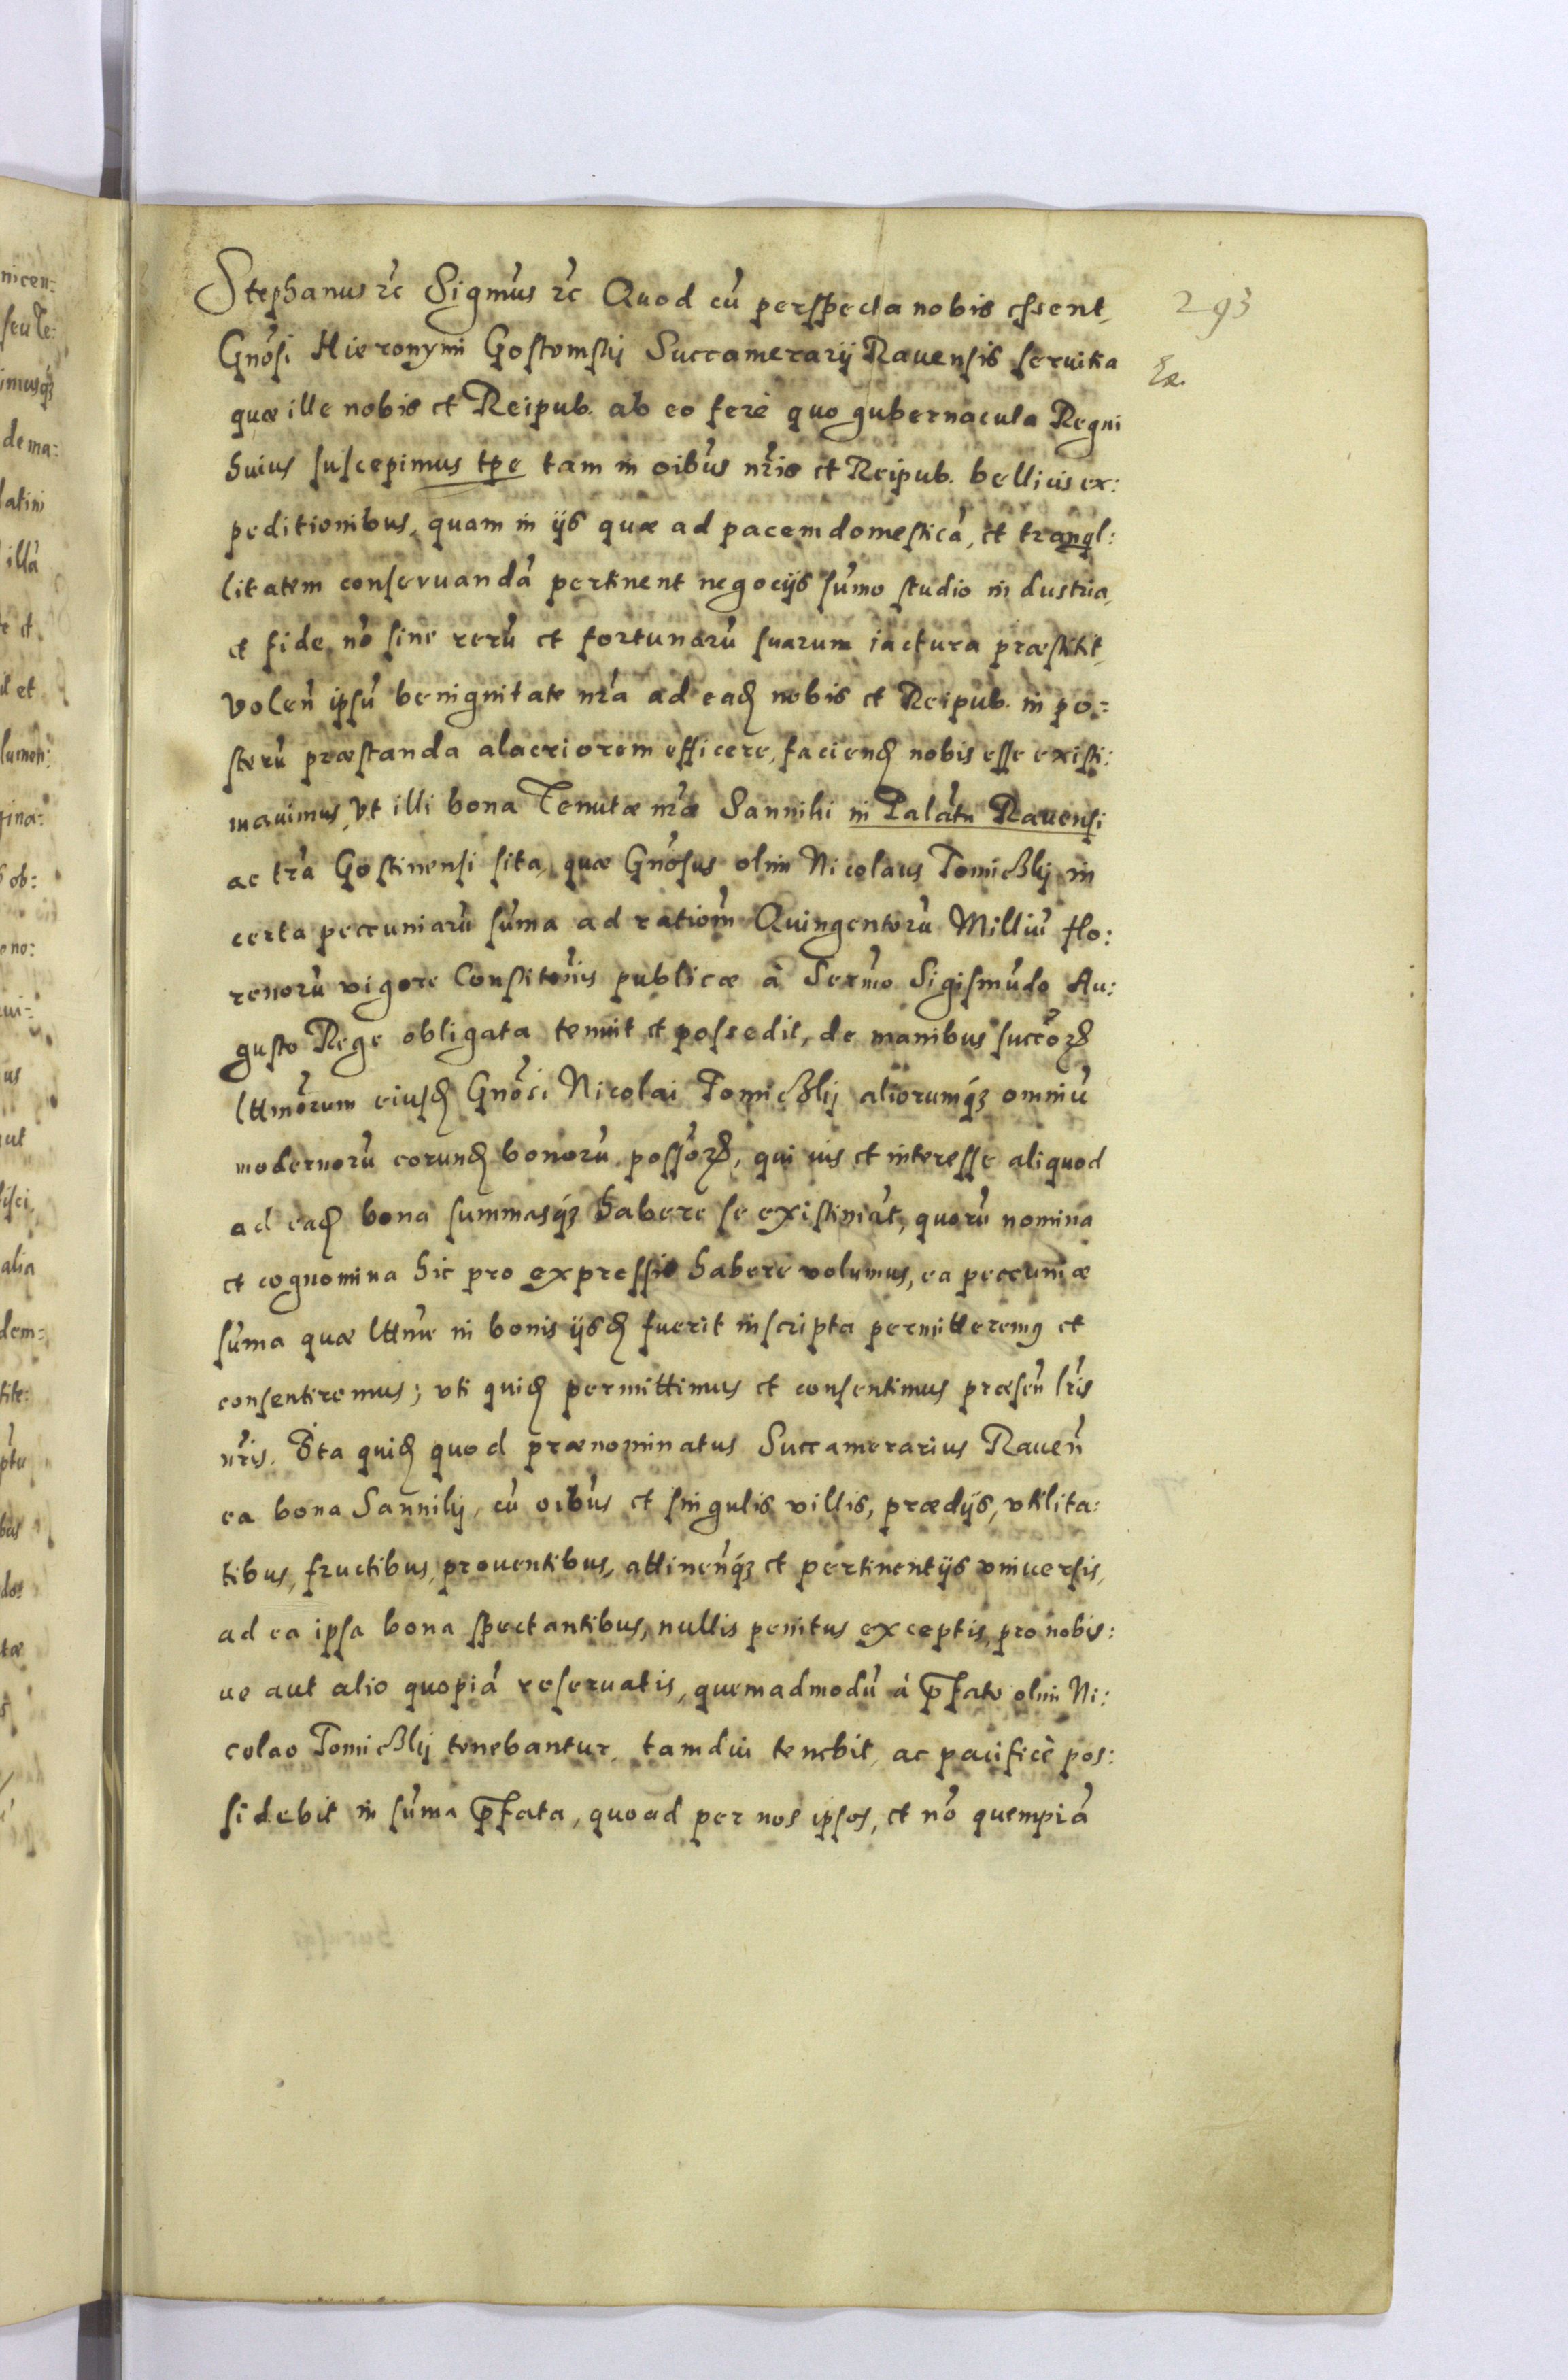 Stephanus ꝛc Sigmūs ꝛc Quod cū perspecta nobis essent,
Gnōsi Hieronymi Gostomskij Succamerarij Rauensis seruitia
quæ ille nobis et Reipub. ab eo ferè quo gubernacula Regni
huius suscepimus tpe tam in oibus nr̄is et Reipub. bellicis ex:
peditionibus, quam in ijs quæ ad pacem domesticā, et tranql:
litatem conseruandā pertinent negocijs sūmo studio industria,
et fide, nō sine rerū et fortunarū suarum iactura præstitit,
volen̄ ipsū benignitate nr̄a ad eadꝫ nobis et Reipub. in po=
sterū præstanda alacriorem efficere, faciendꝫ nobis esse existi:
mauimus, vt illi bona Tenutæ nr̄æ Sanniki in Palātu Rauensi
ac tr̄a Gostinensi sita, quæ Gnōsus olim Nicolaus Tomiczkij in
certa peccuniarū sūma ad ratiōm Quingentorū Milliū flo:
renorū vigore Constitōnis publicæ à Serm̄o Sigismūdo Au:
gusto Rege obligata tenuit et possedit, de manibus succōꝝ
lttmōrum eiusdꝫ Gnōsi Nicolai Tomiczkij aliorumq́ꝫ omniū
modernorū eorundꝫ bonorū possōꝝ, qui ius et interesse aliquod
ad eadꝫ bona summasq́ꝫ habere se existimāt, quorū nomina
et cognomina hic pro expressis habere volumus, ea peccuniæ
sūma quæ lttmē in bonis ijsdꝫ fuerit inscripta permitteremꝰ et
consentiremus; vti quidꝫ permittimus et consentimus præsen̄ lr̄is
nr̄is. Ita quidꝫ quod prænominatus Succamerarius Rauen̄
ea bona Sannikij, cū oibus et singulis villis, prædijs, vtilita:
tibus, fructibus, prouentibus, attinen̄q́ꝫ et pertinentijs vniuersis,
ad ea ipsa bona spectantibus, nullis penitus exceptis, pro nobis:
ue aut alio quopiā reseruatis, quemadmodū à p̄fato olim Ni:
colao Tomiczkij tenebantur, tamdiu tenebit, ac pacificè pos:
sidebit in sūma p̄fata, quoad per nos ipsos, et nō quempiā
293